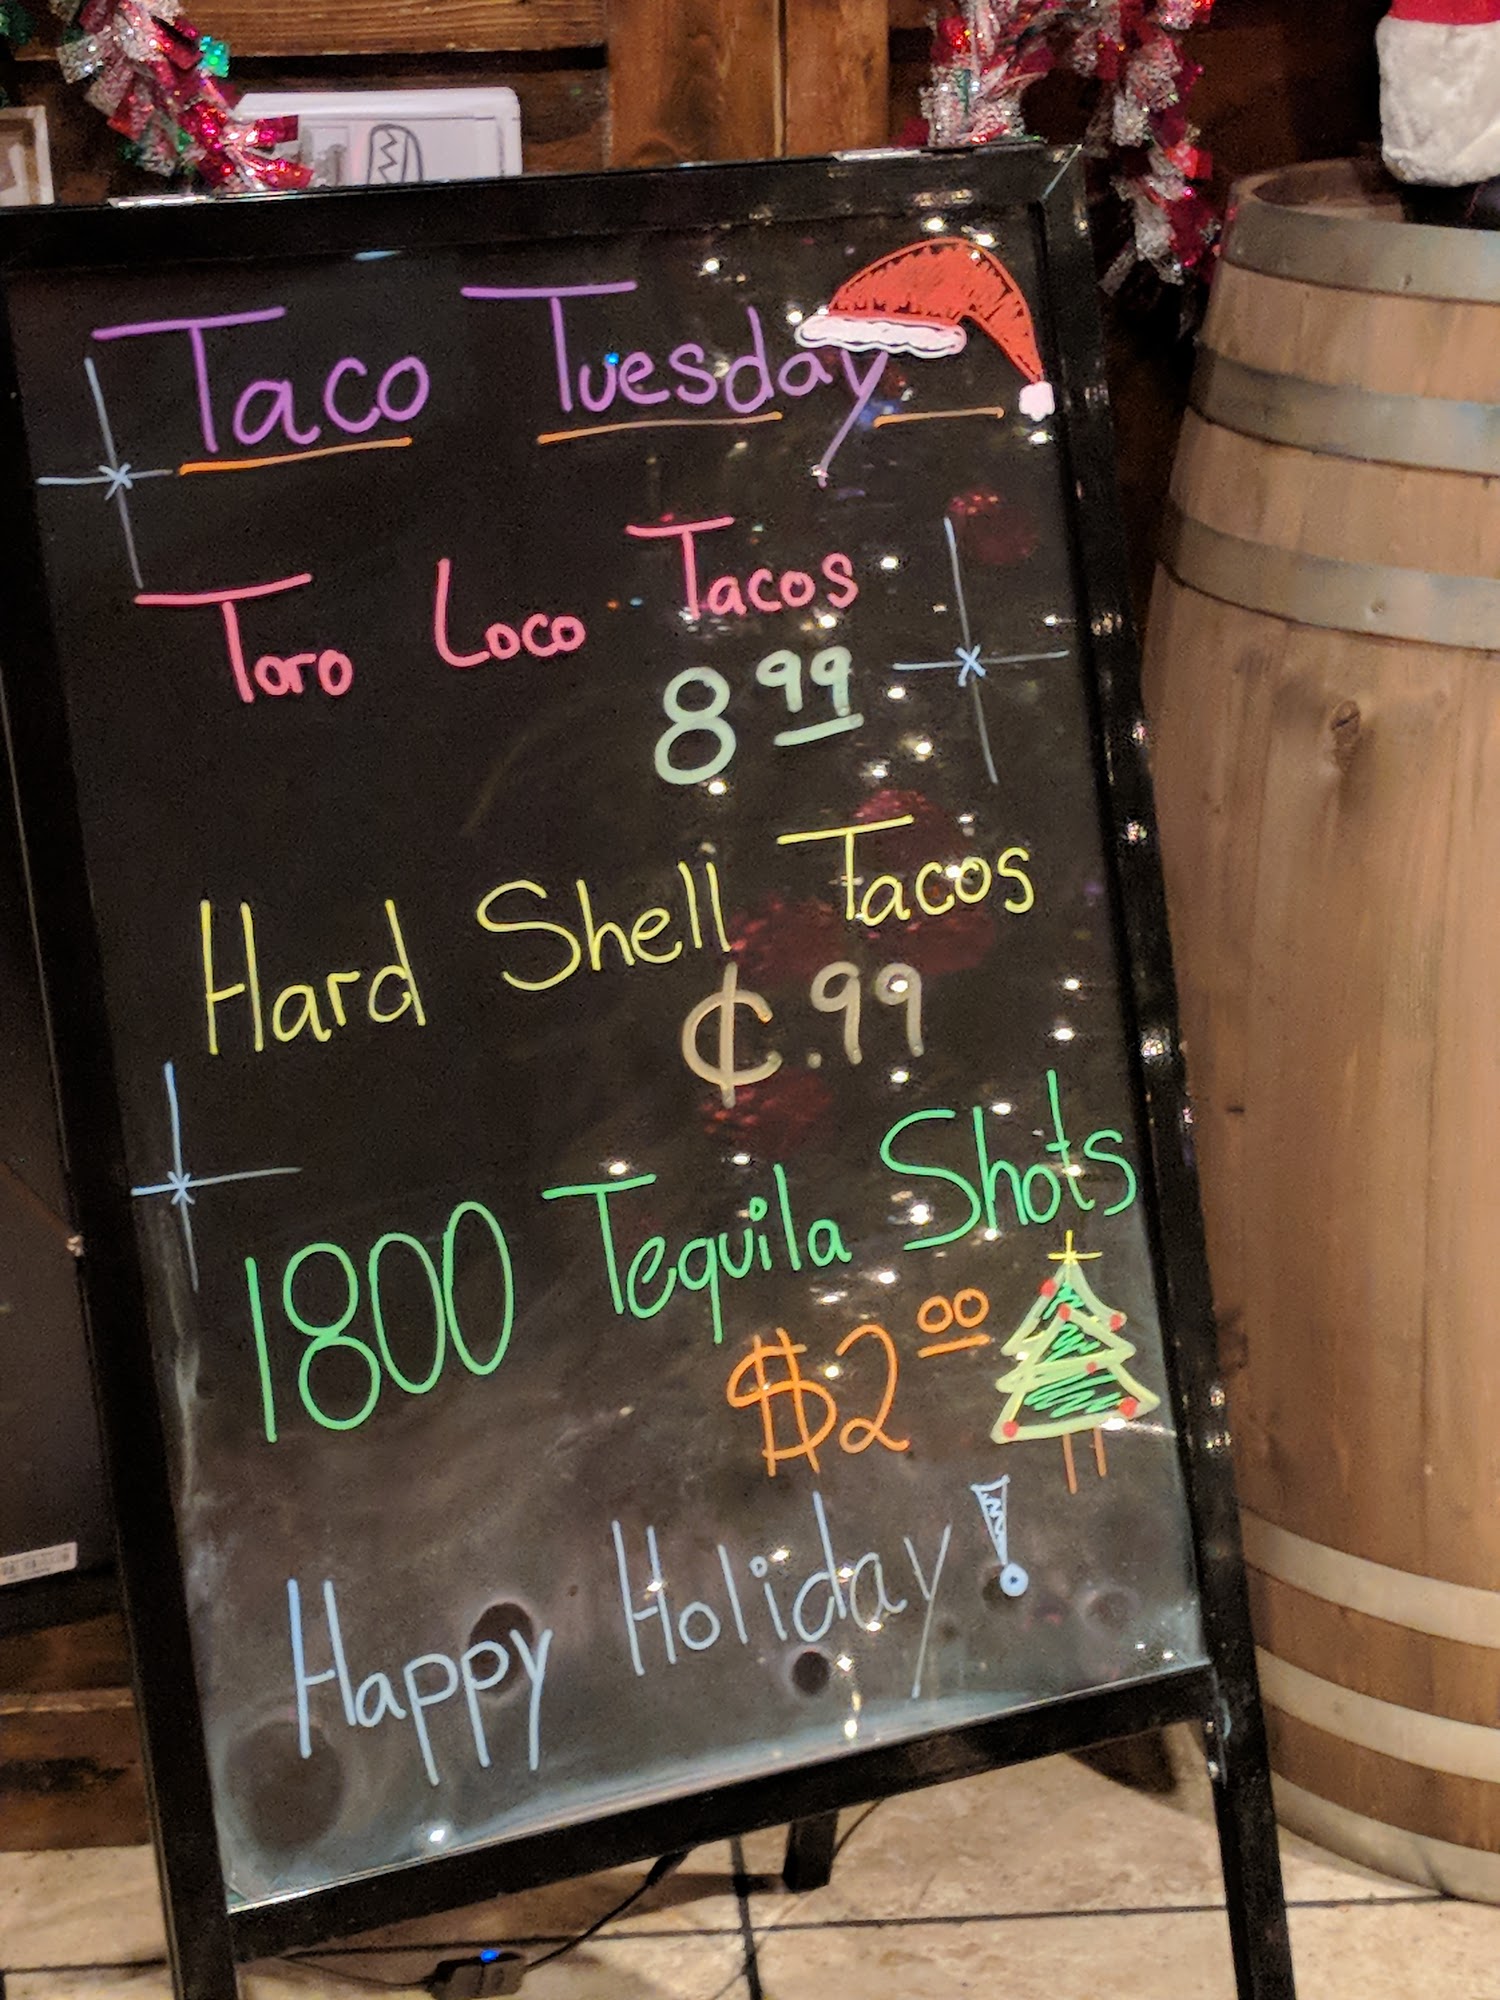 Taco Tuesday
Toro Loco Tacos
8 99
Hard Shell Tacos
¢.99
1800 Tequila Shots
$2 00
Happy Holiday!